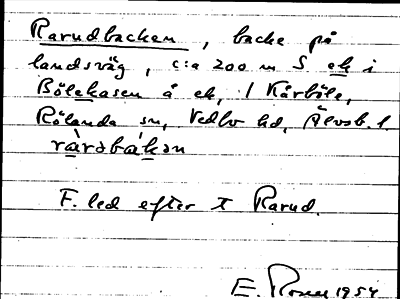 Rarudbacken, backe på
landsväg, c:a 200 m S ek i
Bölekasen å ek, / Kårböle,
Rölanda sn, Vedbo hd, Älvsb. l.
F. led efter t Rarud.
E. 1954